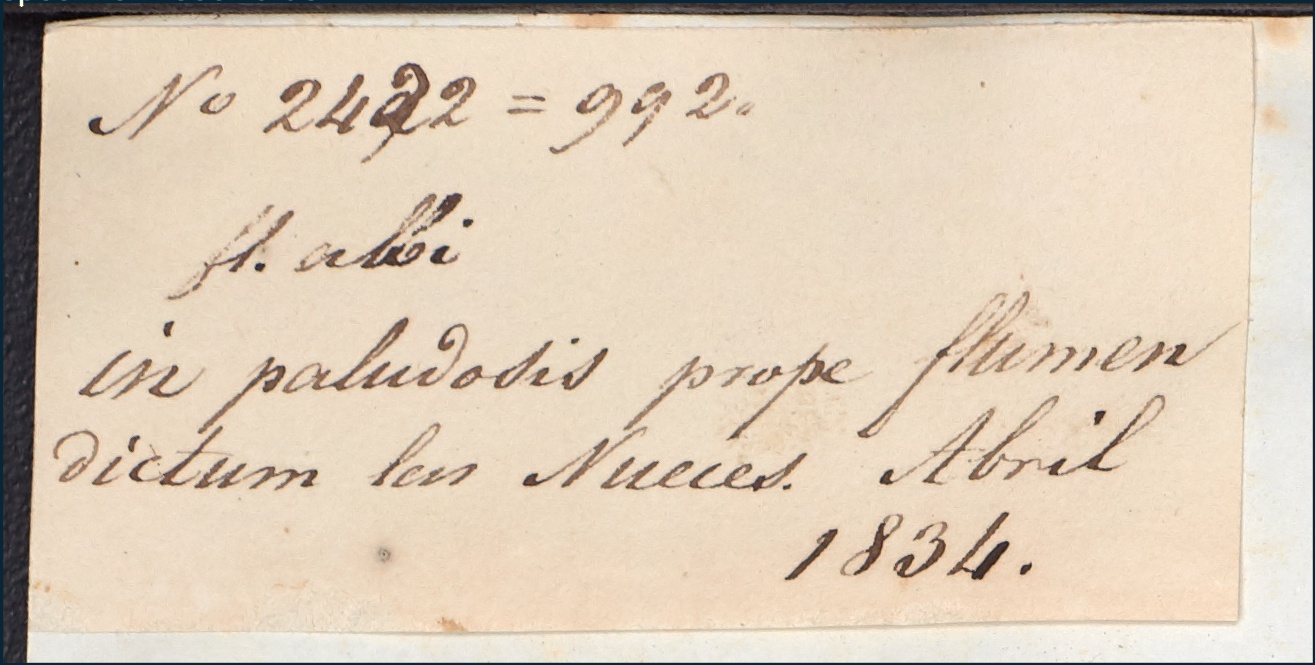 No 2422 = 992.
fl. albi
in paludosis prope flumen
dictum las Nueces. Abril
1834.